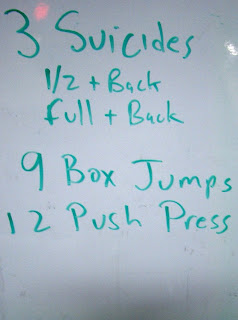 3 Suicides
1/2 + Back
full + Back
9 Box Jumps
12 Push Press